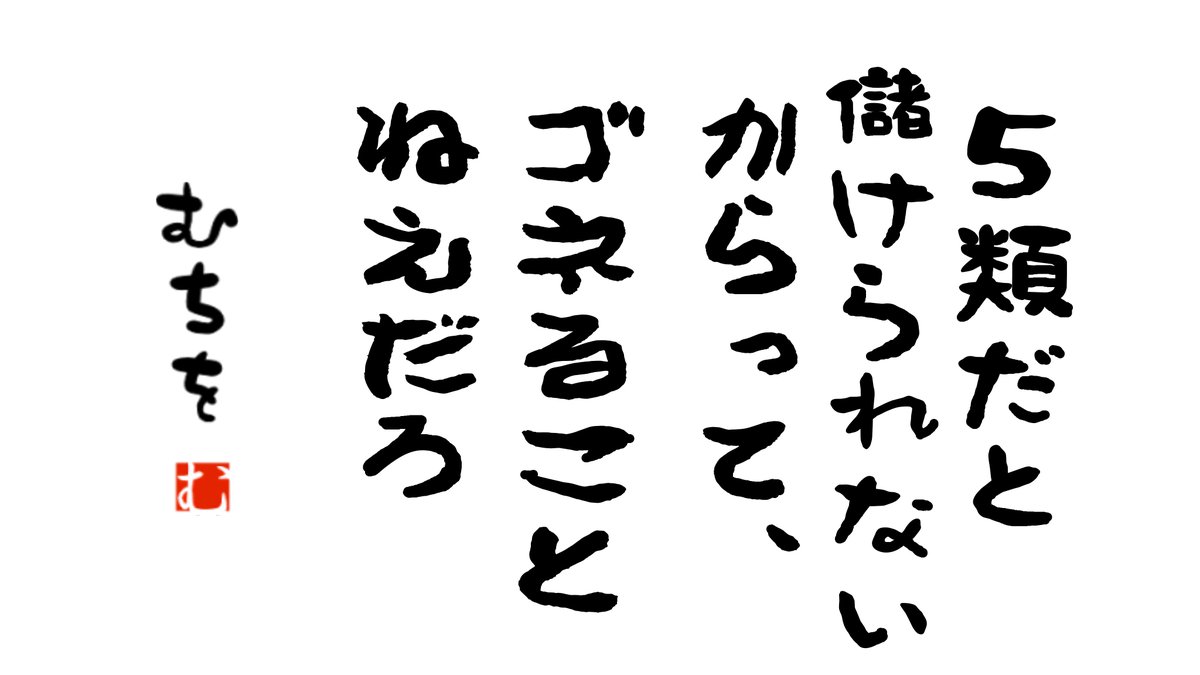 5類だと
儲けられない
からって、
ゴネること
ねえだろ
むちを
む